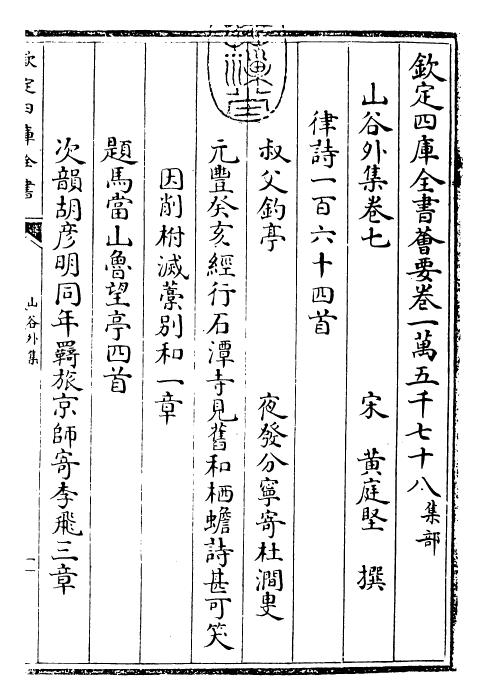 欽定四庫全書薈要卷一萬五千七十八集部
山谷外集卷七　宋　黃庭堅　撰
律詩一百六十四首
叔父釣亭　夜發分寧寄杜澗叟
元豐癸亥經行石潭寺見舊和栖蟾詩甚可笑
因削柎滅藁別和一章
題馬當山魯望亭四首
次韻胡彦明同年羇旅京師寄李飛三章
欽定四庫全書
山谷外集
一